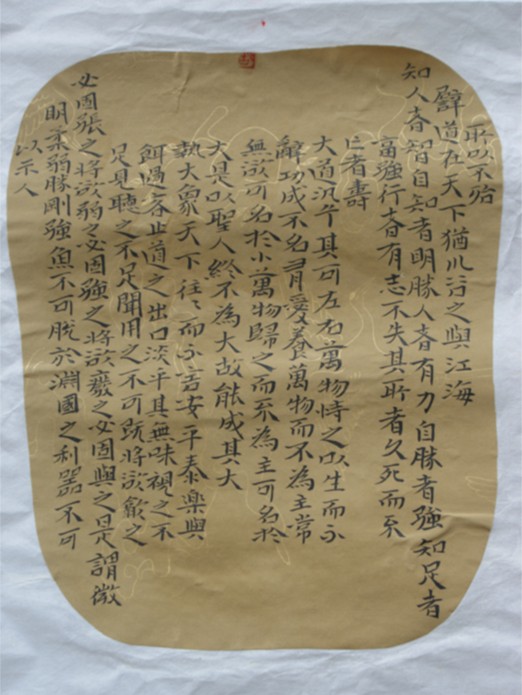 所以不殆
譬道在天下猶川谷之與江海
知人者智自知者明勝人者有力自勝者強知足者
富強行者有志不失其所者久死而不
亡者壽
大道汎兮其可左右萬物恃之以生而不
辭功成不名有愛養萬物而不為主常
無欲可名於小萬物歸之而不為主可名於
大是以聖人終不為大故能成其大
執大象天下往〻而不害安平泰樂與
餌過客止道之出口淡乎其無味視之不
足見聽之不足聞用之不可既將欲歙之
必固張之將欲弱之必固強之將欲廢之必固與之是謂微
明柔弱勝剛強魚不可脫於淵國之利器不可
以示人